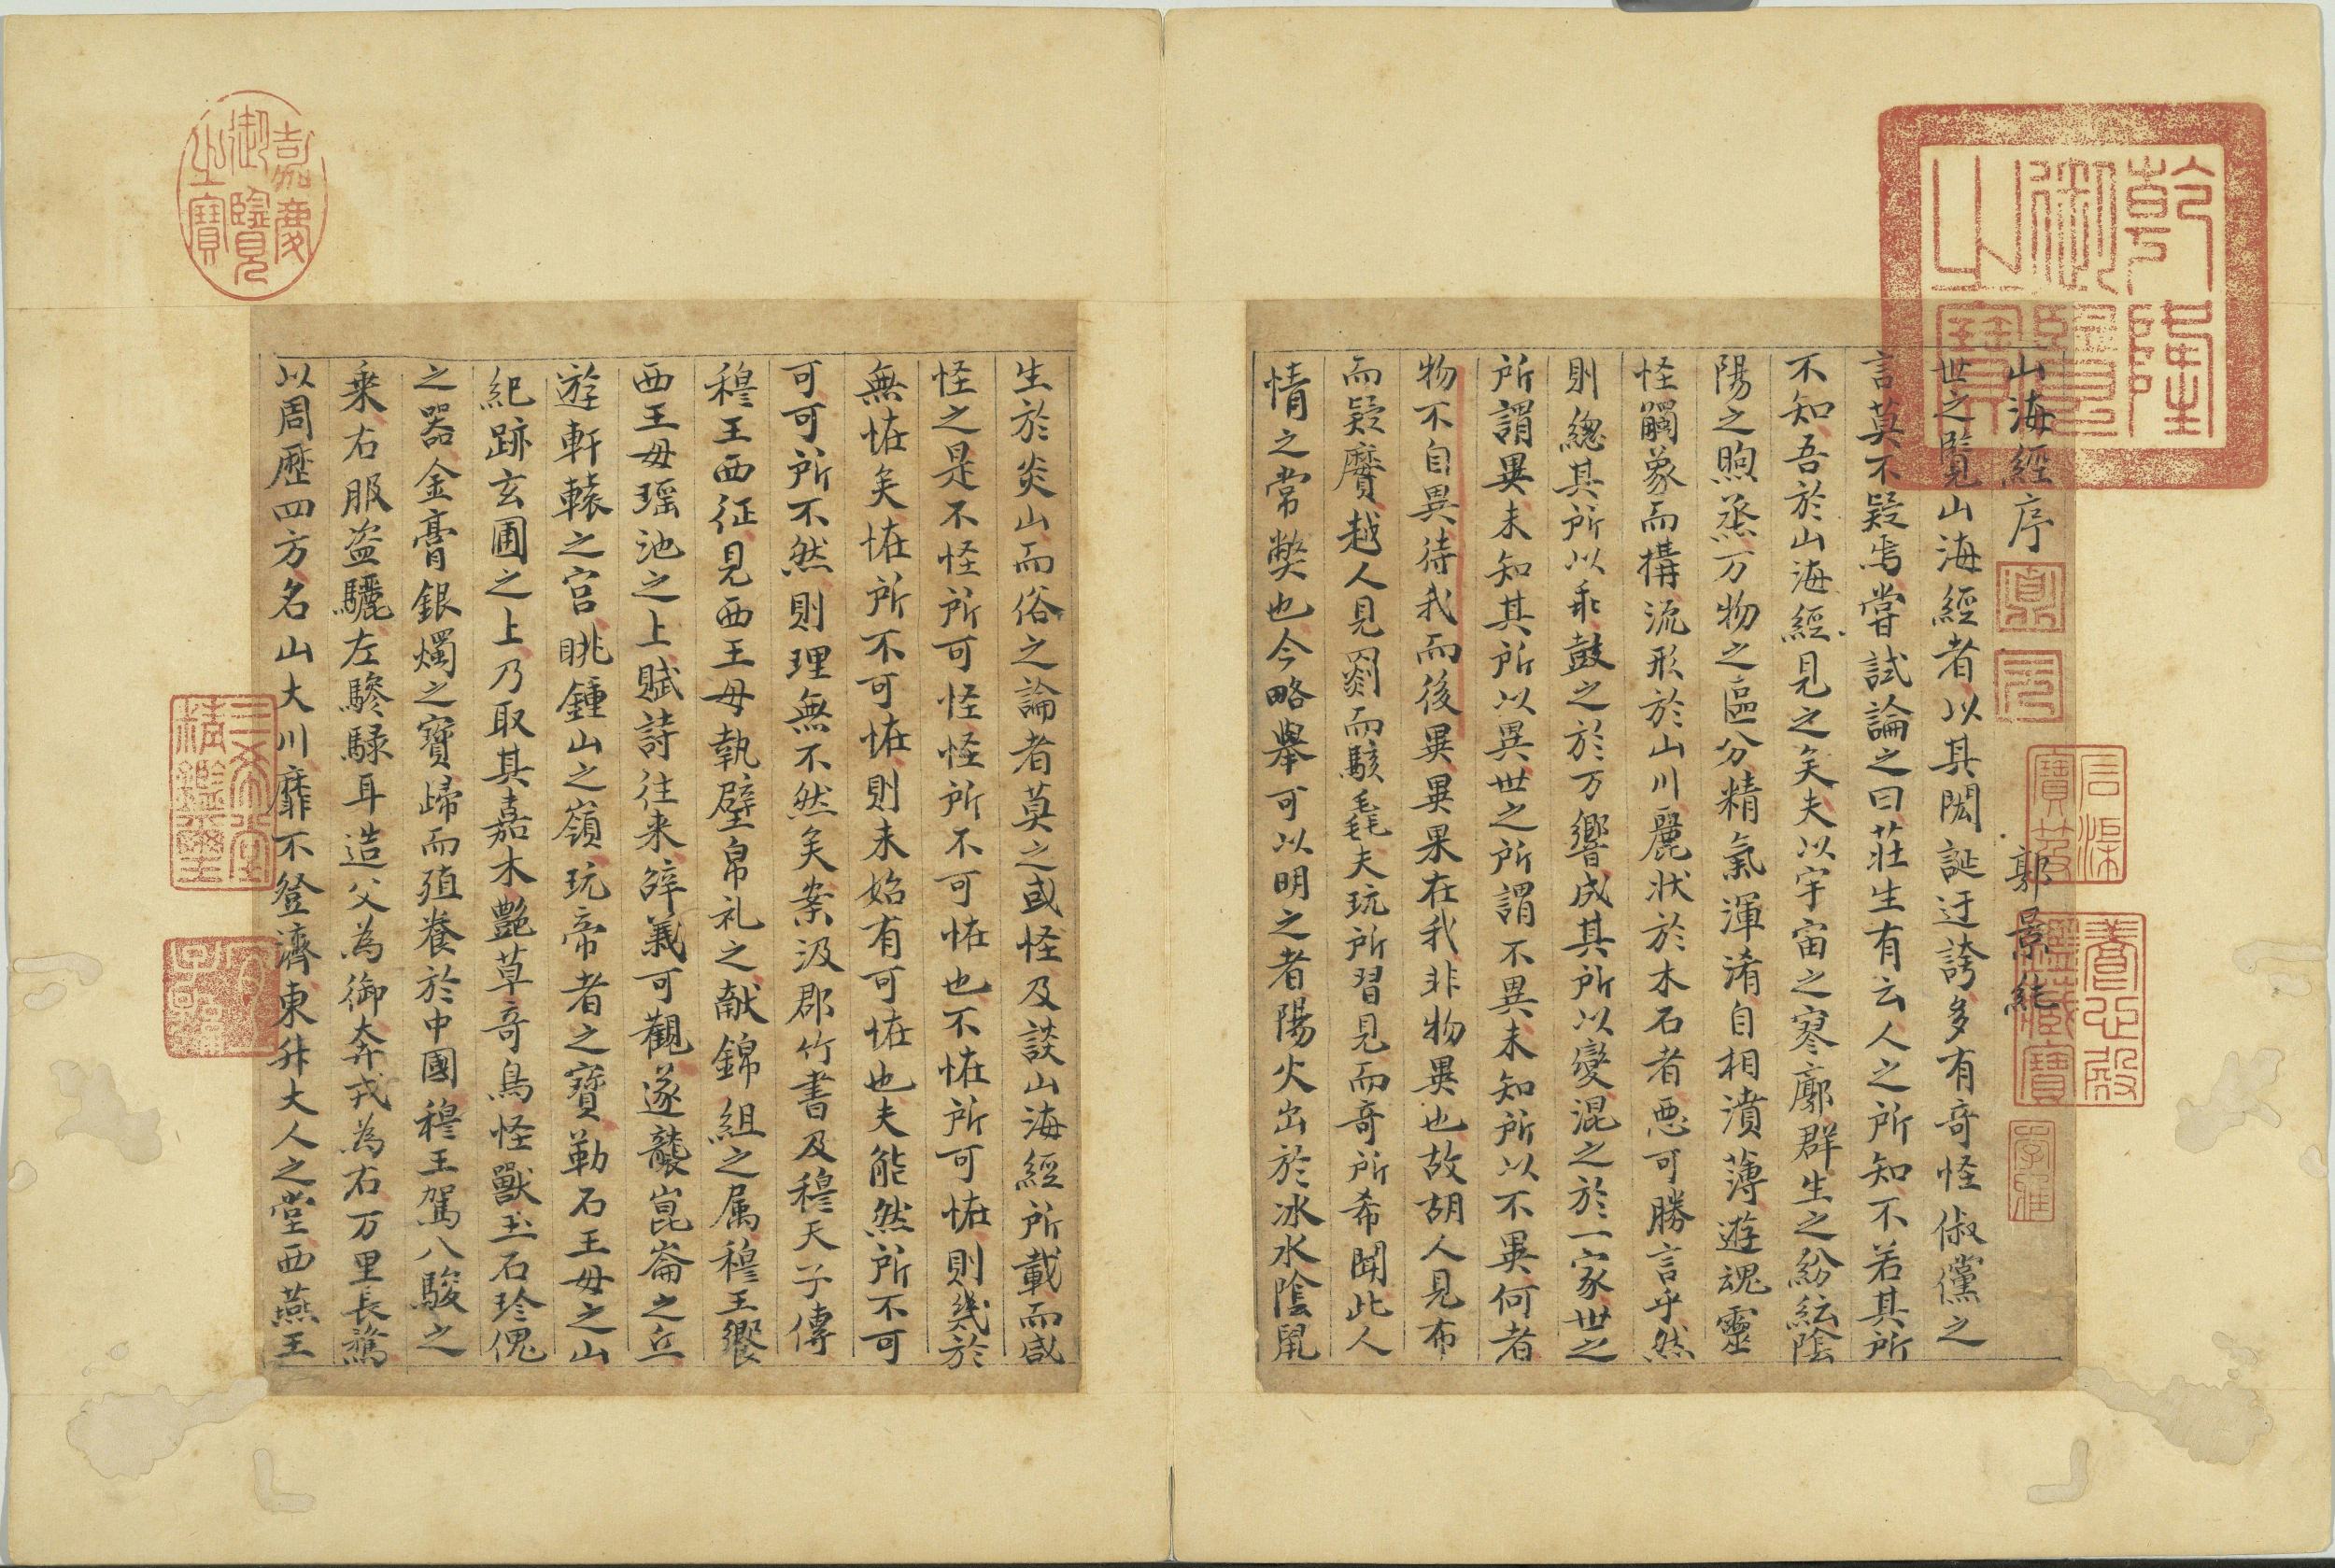 山海經序 郭景純
世之覽山海經者以其閎誕迂誇多有奇怪俶儻之
言莫不疑焉嘗試論之曰莊生有云人之所知不若其所
不知吾於山海經見之矣夫以宇宙之寥廓群生之紛紜陰
陽之煦蒸万物之區分精氣渾淆自相濆薄遊魂靈
怪觸象而構流形於山川麗狀於木石者惡可勝言乎然
則總其所以乖鼓之於万響成其所以變混之於一家世之
所謂異未知其所以異世之所謂不異未知所以不異何者
物不自異待我而後異異果在我非物異也故胡人見布
而疑黂越人見罽而駭毳夫玩所習見而奇所希聞此人
情之常弊也今略舉可以明之者陽火出於冰水陰鼠
生於炎山而俗之論者莫之或怪及談山海經所載而咸
怪之是不怪所可怪怪所不可恠也不恠所可恠則幾於
無恠矣恠所不可恠則未始有可恠也夫能然所不可
可可所不然則理無不然矣案汲郡竹書及穆天子傳
穆王西征見西王母執璧帛礼之献錦組之属穆王饗
西王母瑶池之上賦詩往来辞義可觀遂襲崑崙之丘
遊軒轅之宮眺鍾山之嶺玩帝者之寶勒石王母之山
紀跡玄圃之上乃取其嘉木艷草奇鳥怪獸玉石珍傀
之器金膏銀燭之寶歸而殖養於中國穆王駕八駿之
乘右服盗驪左驂騄耳造父為御奔戎為右万里長騖
以周歷四方名山大川靡不登濟東升大人之堂西燕王
乾隆御覽之寶
嘉慶御覽之寶
石渠寶笈
養心殿鑑藏寶
三希堂精鑑璽
宜子孫